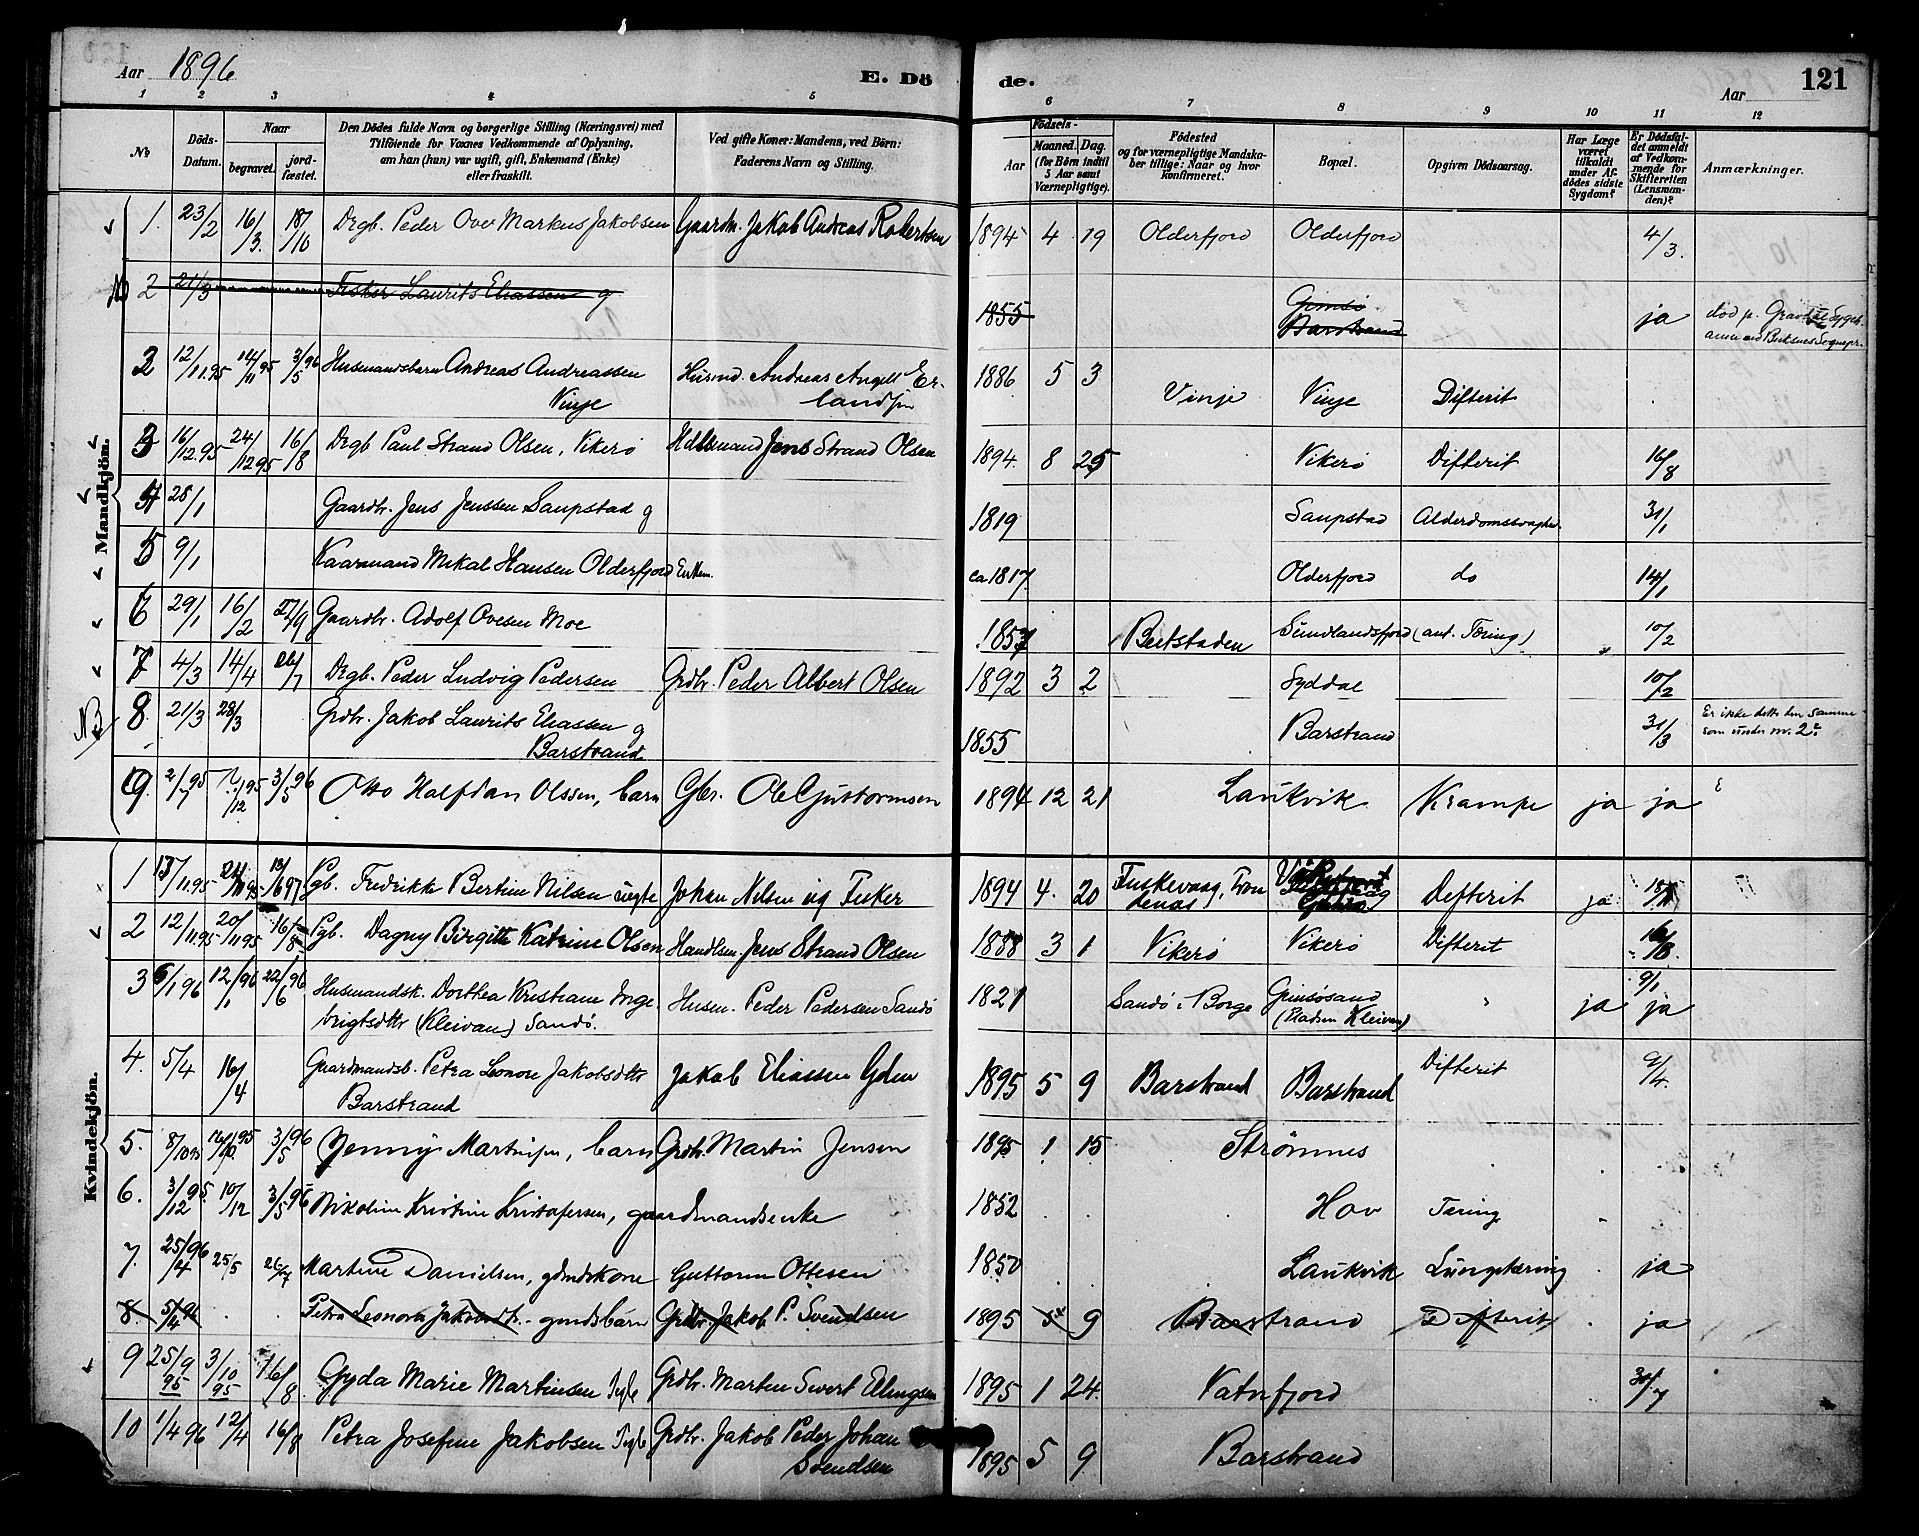 Aar 1896
E. Dö
de.
Aar
121
1 2 3 4 5 6 7 8 9 10 11 12
No
Döds-
Datum.
Naar
begravet.
jord-
fæstet.
Den Dödes fulde Navn og borgerlige Stilling (Næringsvei) med
Tilföiende for Voxnes Vedkommende af Oplysning,
om han (hun) var ugift, gift, Enkemand (Enke)
eller fraskilt.
Ved gifte Koner: Mandens, ved Börn:
Faderens Navn og Stilling.
Födsels-
Aar
Maaned. Dag.
(for Börn indtil
5 Aar samt
Værnepligtige).
Födested
og for værnepligtige Mandska-
ber tillige: Naar og hvor
konfirmeret.
Bopæl.
Opgiven Dödsaarsag.
Har Læge
været
tilkaldt
under Af-
dödes sidste
Sygdom?
Er Dödsfal-
det anmeldt
af Vedkom-
mende for
Skifteretten
(Lensman-
den)?
Anmærkninger.
Mandkjön.
1. 23/2 16/3. 18/10 Drgb. Peder Over Markus Jakobsen Gaardbr. Jakob Andreas Robertsen 1894 4 19 Olderfjord Olderfjord 4/3.
2 21/3 Fisker Laurits Eliassen g 1855 Gimsö Barstrand ja död p. Gravdal Sygeh.
2 12/11.95 14/11 95 3/5 96 Husmandsbarn Andreas Andreassen Husmd. Andreas Angell Er- 1886 5 3 Vinje Vinje Difterit
Vinje landsen
3 16/12.95 24/12 95 16/8 Drgb Paul Strand Olsen, Vikerö Jens Strand Olsen 1894. 8 25 Vikerö Difterit 16/8
4 28/1 Gaardbr. Jens Jenssen Saupstad g 1819 Saupstad Alderdomssvaghed. 31/1
5 9/1 Kaarmand Mikal Hansen Olderfjord Enkem. ca 1817 Olderfjord do 14/1
6 29/1 16/2 27/9 Gaardbr. Adolf Ovesen Moe 1857 Beitstaden Sundlandsfjord (ant. Tæring) 10/2
7 4/3 14/4 26/7 Drgb. Peder Ludvig Pedersen Grdbr. Peder Albert Olsen 1892 3 2 Syddal 10/2
NB 8. 21/3 28/3 Grdbr. Jakob Laurits Eliassen g 1855 Barstrand 31/3 Er ikke dette den samme
Barstrand som under nr. 2?
9. 2/7 95 3/5 96 Otto Halfdan Olssen, barn Gbr. Ole Guttormsen 1894 12 21 Laukvik Krampe ja ja
Kvindekjön.
1 13/11.95 24/11 95 13/6 97 Pgb. Fredrikke Bertine Nilsen uegte Johan Nilsen ug Fisker 1894 4. 20 Fuskevaag, Tron Difterit ja
denæs
2 12/11.95 20/11 95 16/8 Pgb. Dagny Birgitte Katrine Olsen Handlsm. Jens Strand Olsen 1888 3 1 Vikerö Vikerö Difterit 16/8.
3 6/1 96 12/1 96 22/6 96 Husmandsk. Dorthea Kristiane Inge Husm. Peder Pedersen Sandö 1821 Sandö i Borge Gimsösand " ja 9/1 ja
brigtsdtr (Kleivan) Sandö. (Pladsen Kleivan)
4. 5/4 16/4 Gaardmandsb. Petra Leonore Jakobsdtr Jakob Eliassen Gdm 1895 5 9 Barstrand Barstrand Difterit 9/4.
Barstrand
5. 8/10 95 3/5 96 Jenny Martinsen, barn Grdbr. Martin Jensen 1895 1 15 Strömnes
6. 3/12 95. 10/12 3/5 96 Nikoline Kristine Kristofersen, gaardmandsenke 1852 Hov Tæring
7. 25/4 96 25/5 26/7 Martine Danielsen, gdmdskone Guttorm Ottesen 1850 Laukvik Lungetæring ja
8. 5/4 96 Petra Leonora Jakobsdtr. - gmdsbarn Grdbr. Jakob P. Svendsen 1895 5 9 Barstrand Difterit ja
9 25/9 95 3/10 95 16/8 Gyda Marie Martinsen Grdbr. Martin Sivert Ellingsen 1895 1 24. Vatnfjord 30/7
10 1/4 96 12/4 16/8 Petra Josefine Jakobsen Grdbr. Jakob Peder Johan 1895 5 9 Barstrand
Svendsen